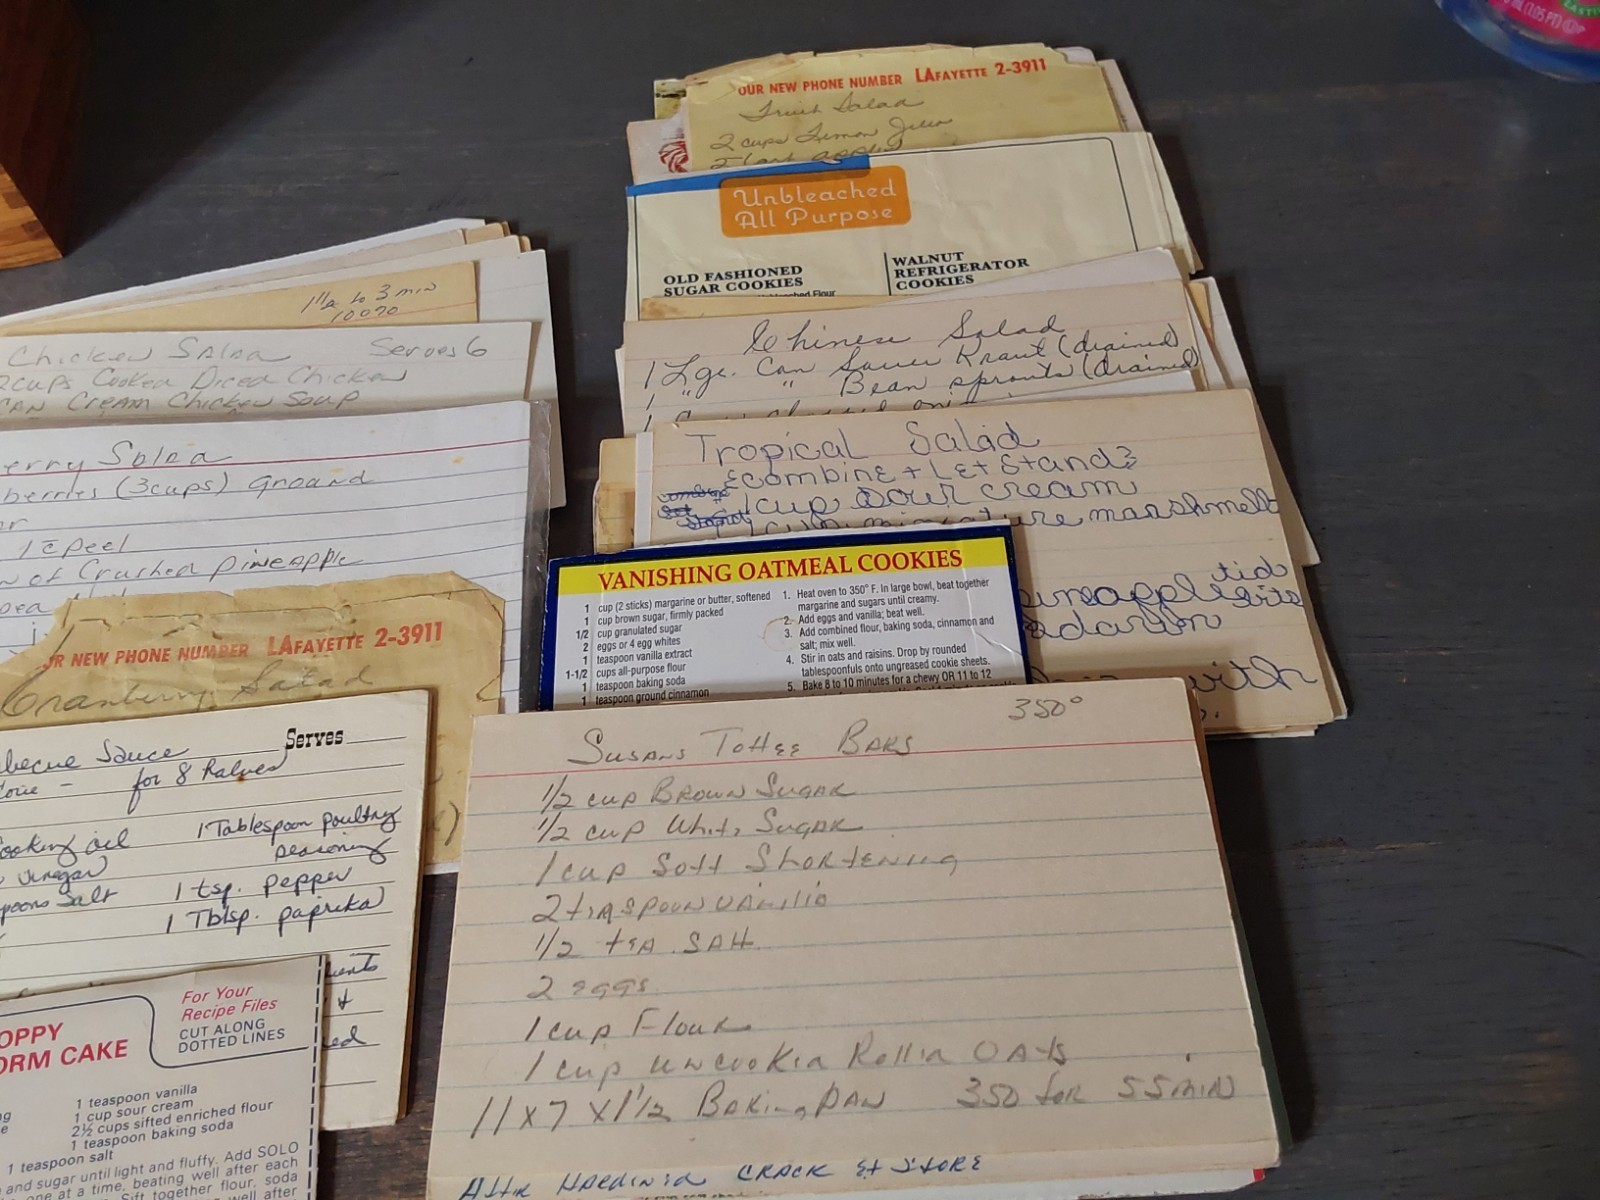 OUR NEW PHONE NUMBER LAFAYETTE 2-3911
Fruit Salad
2 cups Lemon
Unbleached
All Purpose
OLD FASHIONED
SUGAR COOKIES
WALNUT
REFRIGERATOR
COOKIES
Flour
Chinese Salad
1 Lge. Can Sauer Kraut (drained)
1 " " Bean sprouts (drained)
1
Tropical Salad
combine + Let Stand
1 cup sour cream
miniature marshmell
tid
with
VANISHING OATMEAL COOKIES
1 cup (2 sticks) margarine or butter, softened
1 cup brown sugar, firmly packed
1/2 cup granulated sugar
2 eggs or 4 egg whites
1 teaspoon vanilla extract
1-1/2 cups all-purpose flour
1 teaspoon baking soda
1 teaspoon ground cinnamon
1. Heat oven to 350° F. In large bowl, beat together
margarine and sugars until creamy.
2. Add eggs and vanilla; beat well.
3. Add combined flour, baking soda, cinnamon and
salt; mix well.
4. Stir in oats and raisins. Drop by rounded
tablespoonfuls onto ungreased cookie sheets.
5. Bake 8 to 10 minutes for a chewy OR 11 to 12
350°
Susans Toffee Bars
1/2 cup Brown Sugar
1/2 cup White Sugar
1 cup Soft Shortening
2 teaspoon vanilla
1/2 tea. SALT
2 eggs
1 cup Flour
1 cup uncooked Rolled OAts
11 x 7 x 1 1/2 Baking PAN 350 for 55 min
After HARdening CRACK & StORE
1 1/2 to 3 min
Chicken Salad Serves 6
2 cups Cooked Diced Chicken
CAN Cream Chicken Soup
erry Salad
berries (3 cups) Ground
1 c peel
of Crushed pineapple
R NEW PHONE NUMBER LAFAYETTE 2-3911
Cranberry Salad
becue Sauce
Serves
for 8 halves
Cooking oil
vinegar
poons Salt
1 Tablespoon poultry
seasoning
1 tsp. pepper
1 Tblsp. paprika
OPPY
ORM CAKE
For Your
Recipe Files
CUT ALONG
DOTTED LINES
1 teaspoon vanilla
1 cup sour cream
2½ cups sifted enriched flour
1 teaspoon baking soda
1 teaspoon salt
and sugar until light and fluffy. Add SOLO
one at a time, beating well after each
Sift together flour, soda
well after